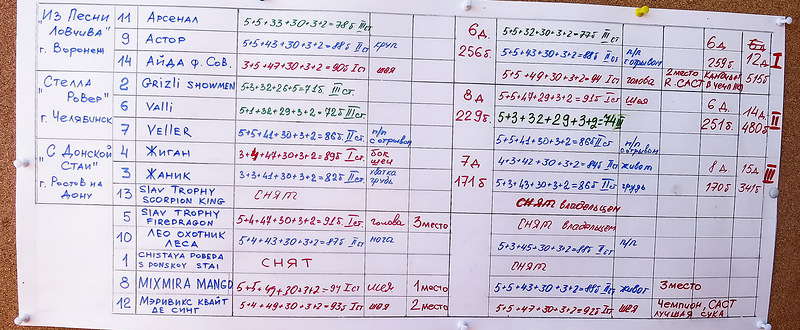 "Из Песни Ловчива" г. Воронеж
11 Арсенал 5+5+33+30+3+2=78б III ст. 6д 256б 5+5+32+30+3+2=77б III ст. 6д 259б 12д 515б I
9 Астор 5+5+43+30+3+2=88б II ст круп 5+5+43+30+3+2=88б II ст п/п с отрывом
14 Айда ф. Сов. 3+5+47+30+3+2=90б I ст шея 5+5+49+30+3+2=94 I ст голова 2место R.САСТ Кандидат в чемпионы
"Стелла Ровер" г. Челябинск
2 Grizli Showmen 5+3+32+26+5=71б III ст. 8д 229б 5+5+47+29+3+2=91б I ст шея 6д. 251б. 14д. 480б II
6 Valli 5+1+32+29+3+2=72б III ст 5+3+32+29+3+2=74 III
7 Veller 5+5+41+30+3+2=86б II ст п/п с отрывом 5+5+41+30+3+2=86б II ст п/п с отрывом
"С Донской Стаи" г. Ростов на Дону
4 Жиган 3+4+47+30+3+2=89б I ст. бок шеи 7д 171б 4+3+42+30+3+2=84б II ст живот 8д 170б 15д 341б III
3 Жаник 3+3+41+30+3+2=82б II ст хватка грудь 5+3+43+30+3+2=86б II ст грудь
13 Slav Trophy Scorpion King снят снят владельцем
5 Slav Trophy Firedragon 5+4+47+30+3+2=91б I ст. голова 3место снят владельцем
10 Лео Охотник Леса 5+4+43+30+3+2=87б II ст нога 5+3+45+30+3+2=88б II ст п/п
1 Chistaya Pobeda S Donskoy Stai снят снят
8 Mixmira Mango 5+5+49+30+3+2=94 I ст шея 1место 5+5+43+30+3+2=88б II ст живот 3место
12 Мэривикс Квайт Де Синг 5+4+49+30+3+2=93б I ст шея 2 место 5+5+47+30+3+2=92б I ст шея Чемпион, САСТ лучшая сука